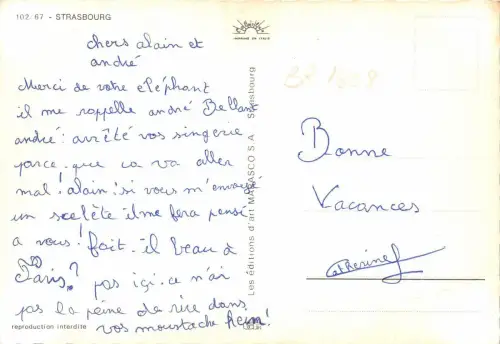 102. 67 - STRASBOURG
IMPRIMÉ EN ITALIE
chers alain et
andré
Merci de votre eléphant
il me rappelle andré Bellant
andré : arrêté vos singerie
parce que ca va aller
mal ! alain : si vous m'envoyé
un scelète il me fera pensé
a vous ! fait-il beau à
Paris ? pas içi. ce n'ai
pas la peine de rire dans
vos moustache hein !
Les éditions d'art MARASCO S A Strasbourg
Bonne
Vacances
Catherine
reproduction interdite